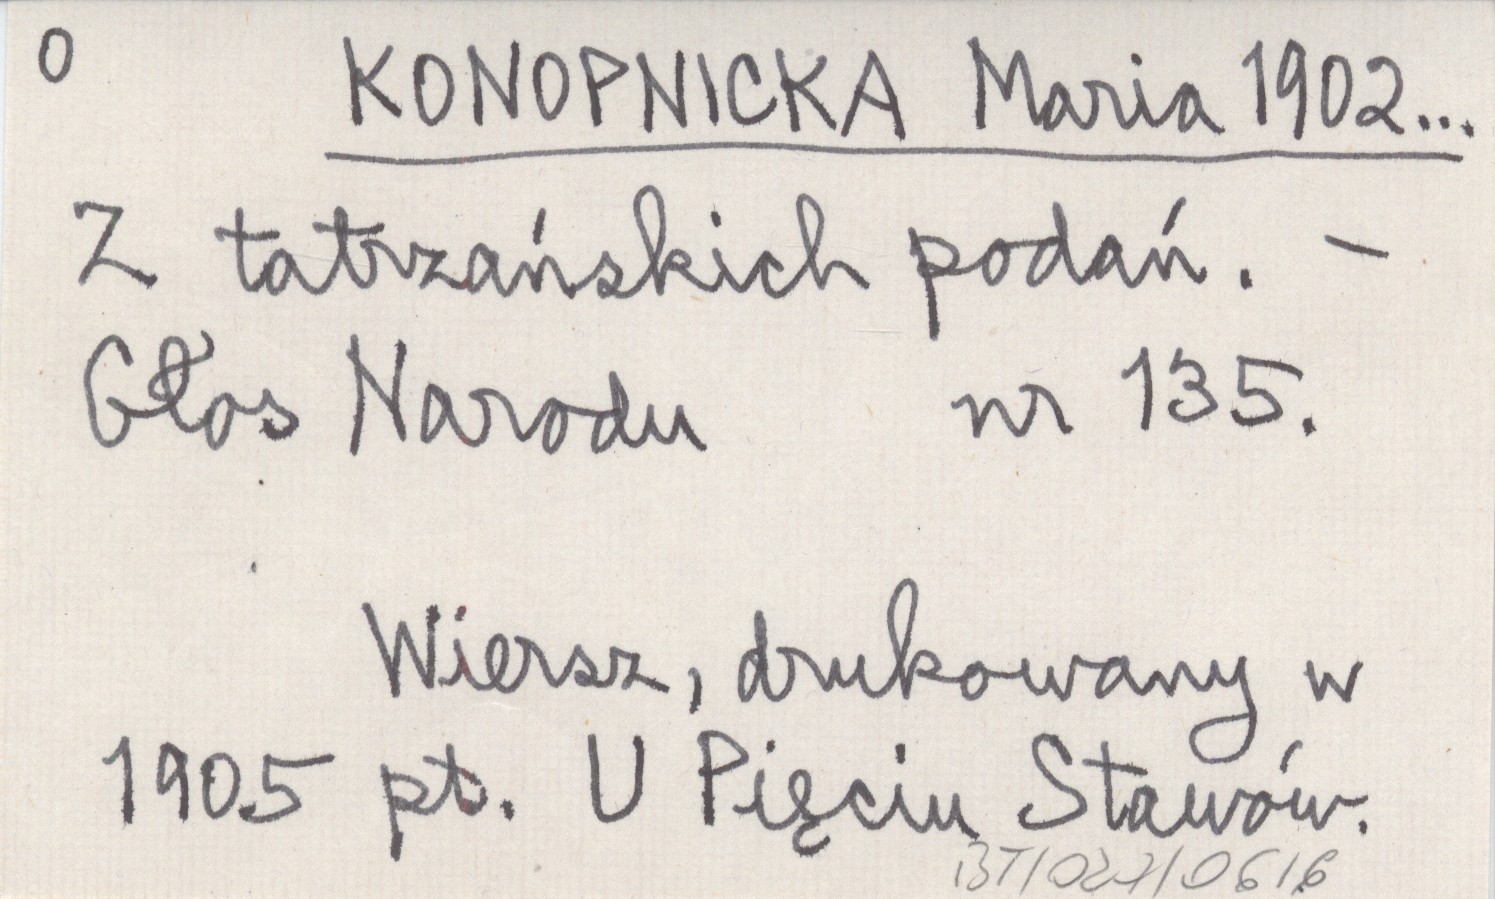 O
KONOPNICKA Maria 1902...
Z tatrzańskich podań. -
Głos Narodu nr 135.
Wiersz, drukowany w
1905 pt. U Pięciu Stawów.
BT/027/0616